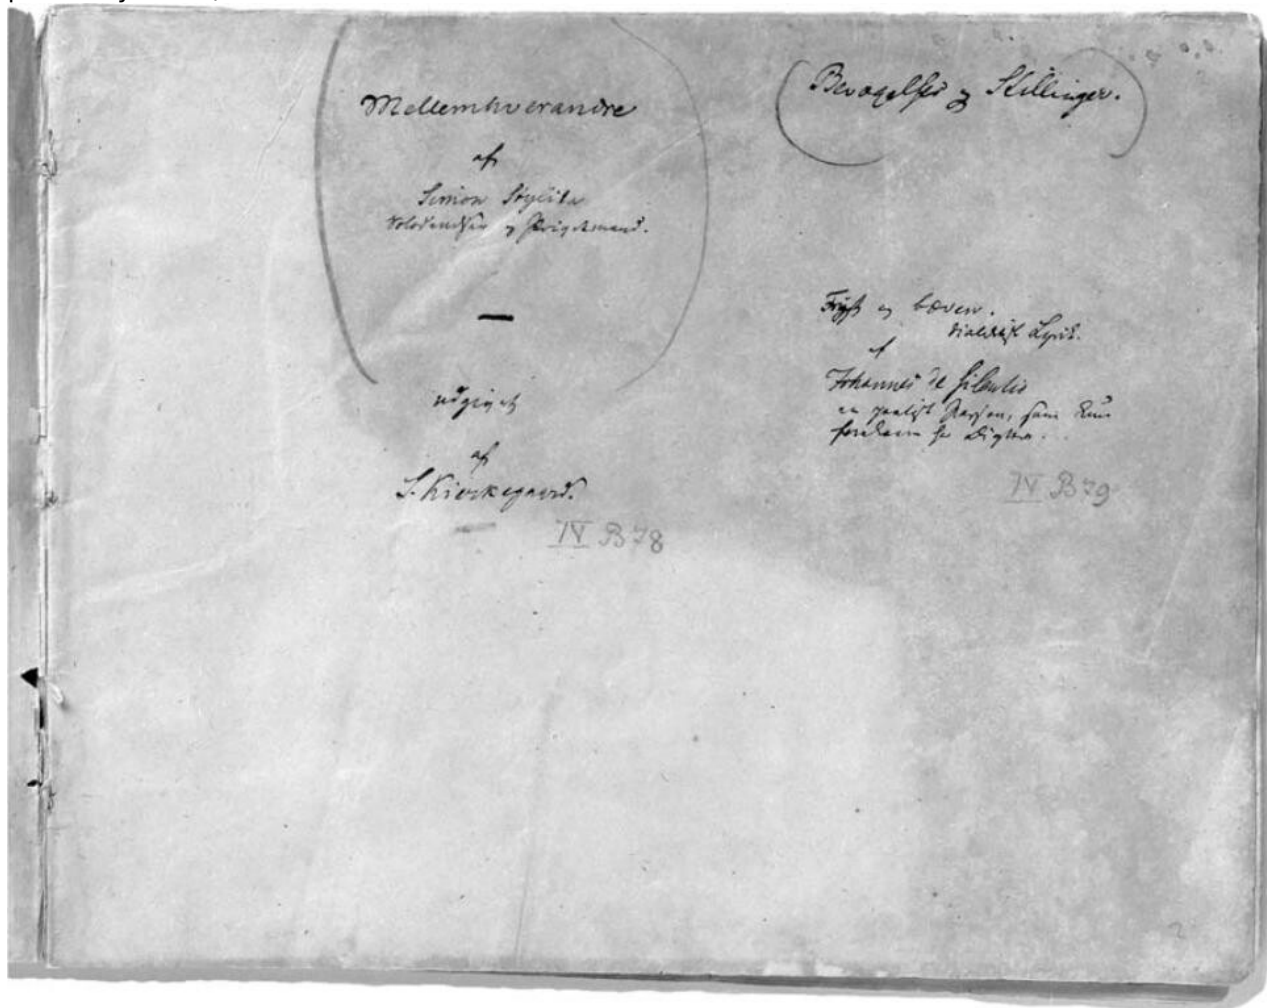 Mellemhverandre
af
Simon Stylita
Solodandser og Privatmand.
udgivet
af
S. Kierkegaard.
IV B 78
Bevægelser og Stillinger.
Frygt og Bæven.
dialektisk Lyrik.
af
Johannes de silentio
en poetisk Person, som kun
Digtere.
IV B 79
2